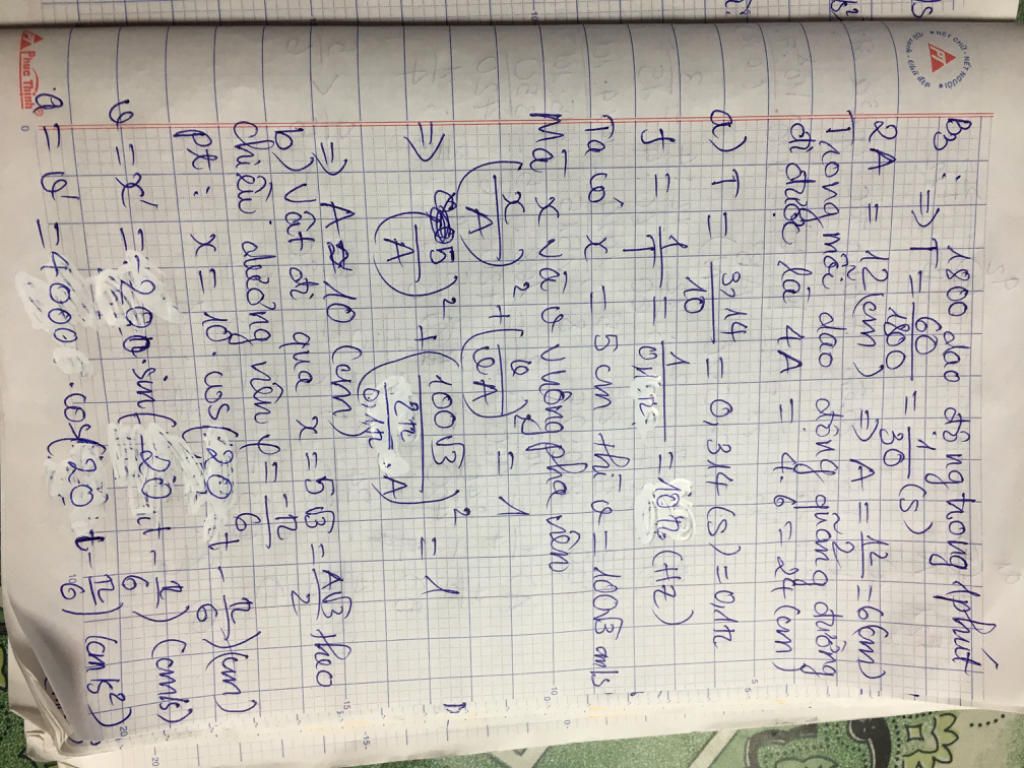 B3: 1800 dao động trong 1 phút
=> T = 60/1800 = 1/30 (s)
2A = 12 (cm) => A = 12/2 = 6 (cm)
Trong mỗi dao động quãng đường
đi được là 4A = 4.6 = 24 (cm)
a) T = 3,14/10 = 0,314 (s) = 0,1π
f = 1/T = 1/0,1π = (Hz)
Ta có x = 5 cm thì v = 100√3 cm/s
Mà x và v vuông pha nên
(x/A)² + (v/ωA)² = 1
=> (5/A)² + (100√3/(2π/0,1π . A))² = 1
=> A = 10 (cm)
b) Vật đi qua x = 5√3 = A√3/2 theo
chiều dương nên φ = -π/6
pt: x = 10.cos(20t - π/6) (cm)
v = x' = -200.sin(20t - π/6) (cm/s)
a = v' = -4000.cos(20t - π/6) (cm/s²)
Phuc Thinh
NÉT CHỮ - NẾT NGƯỜI